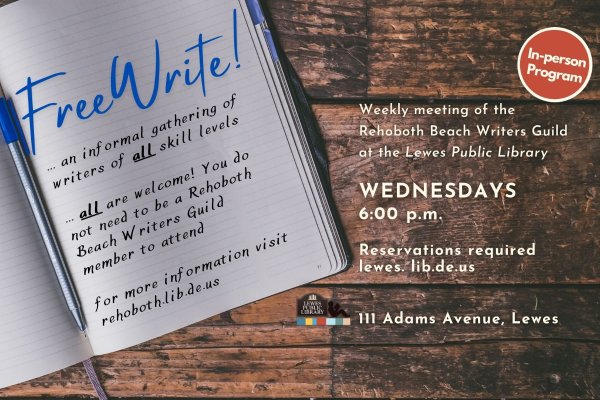 FreeWrite!
... an informal gathering of
writers of all skill levels
... all are welcome! You do
not need to be a Rehoboth
Beach Writers Guild
member to attend
for more information visit
rehoboth.lib.de.us
In-person
Program
Weekly meeting of the
Rehoboth Beach Writers Guild
at the Lewes Public Library
WEDNESDAYS
6:00 p.m.
Reservations required
lewes. lib.de.us
LEWES
PUBLIC
LIBRARY
111 Adams Avenue, Lewes